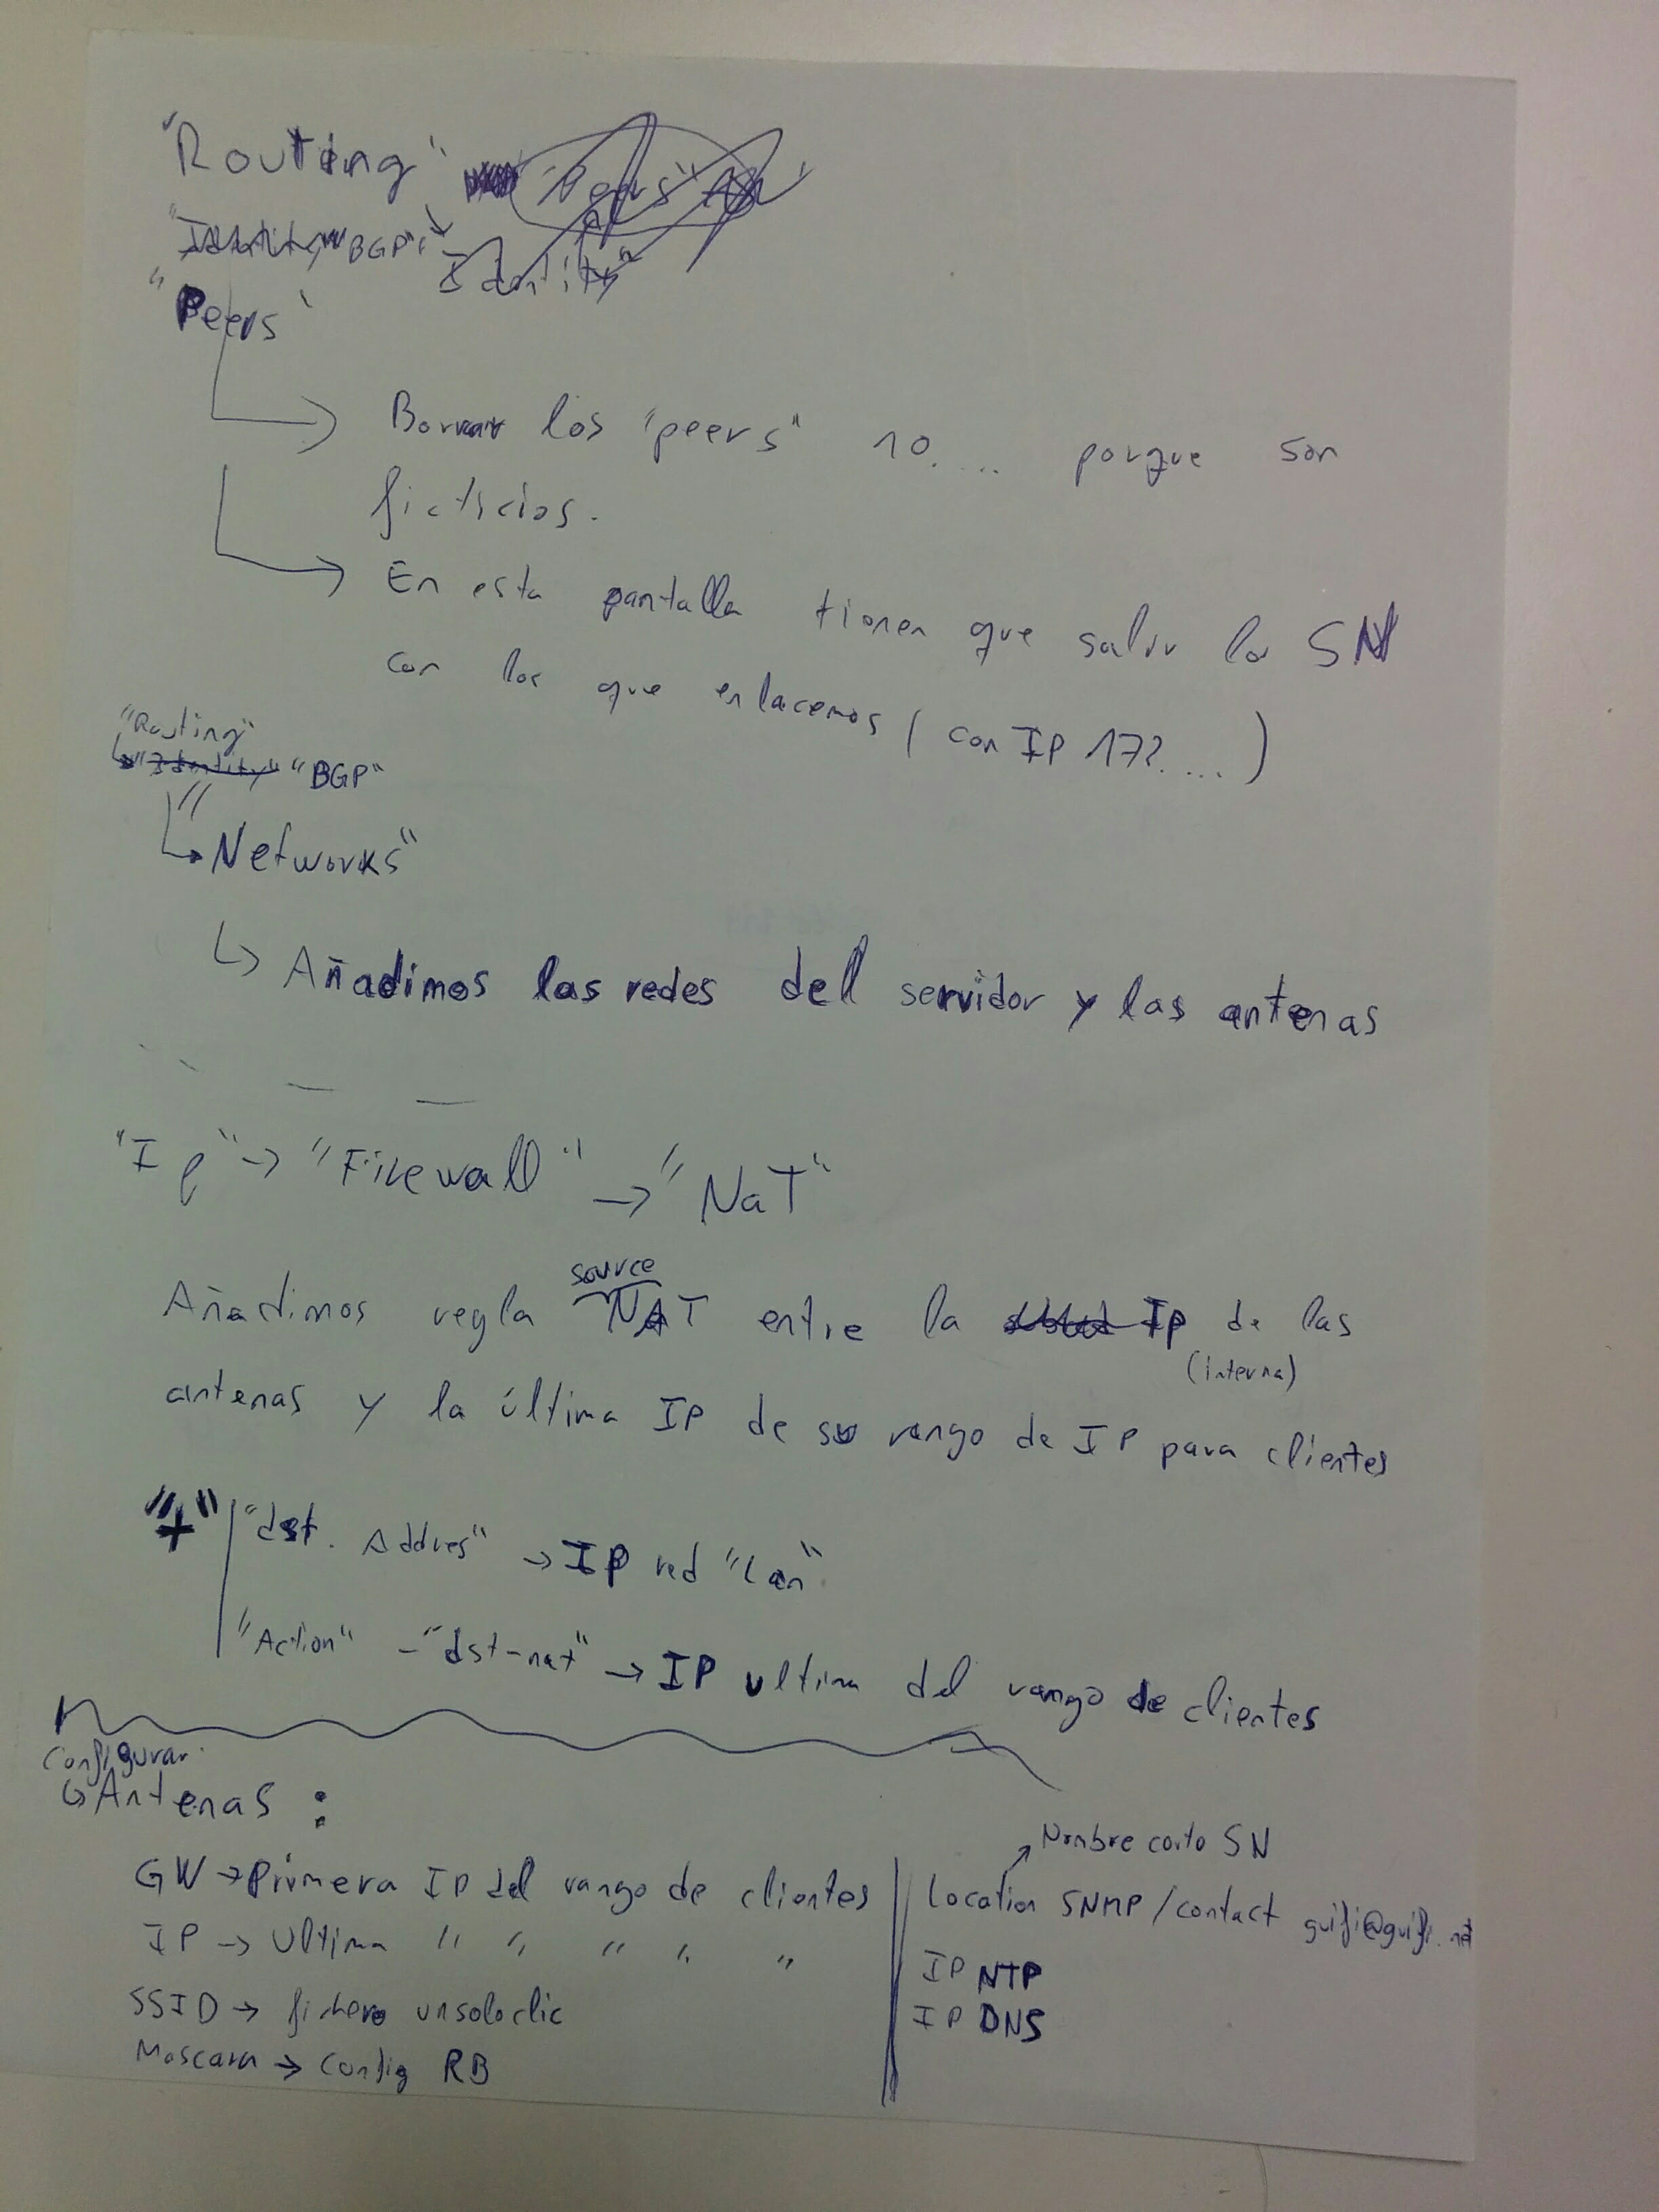 "Routing"
"BGP"
"Peers"
Borrar los "peers" 10.... porque son
ficticios.
En esta pantalla tienen que salir lo SN
con los que enlacemos (con IP 172....)
"Routing"
"Identity" "BGP"
"Networks"
Añadimos las redes del servidor y las antenas
"Ip" → "Firewall" → "NaT"
source
Añadimos regla NAT entre la Ip de las
(interna)
antenas y la última IP de su rango de IP para clientes
"+" "dst. Addres" → IP red "Lan"
"Action" - "dst-nat" → IP ultima del rango de clientes
Configurar
↳ Antenas :
Nombre corto SN
GW → Primera IP del rango de clientes
IP → Ultima " " " " "
SSID → fichero unsoloclic
Mascara → Config RB
Location SNMP / contact guifi@guifi.net
IP NTP
IP DNS